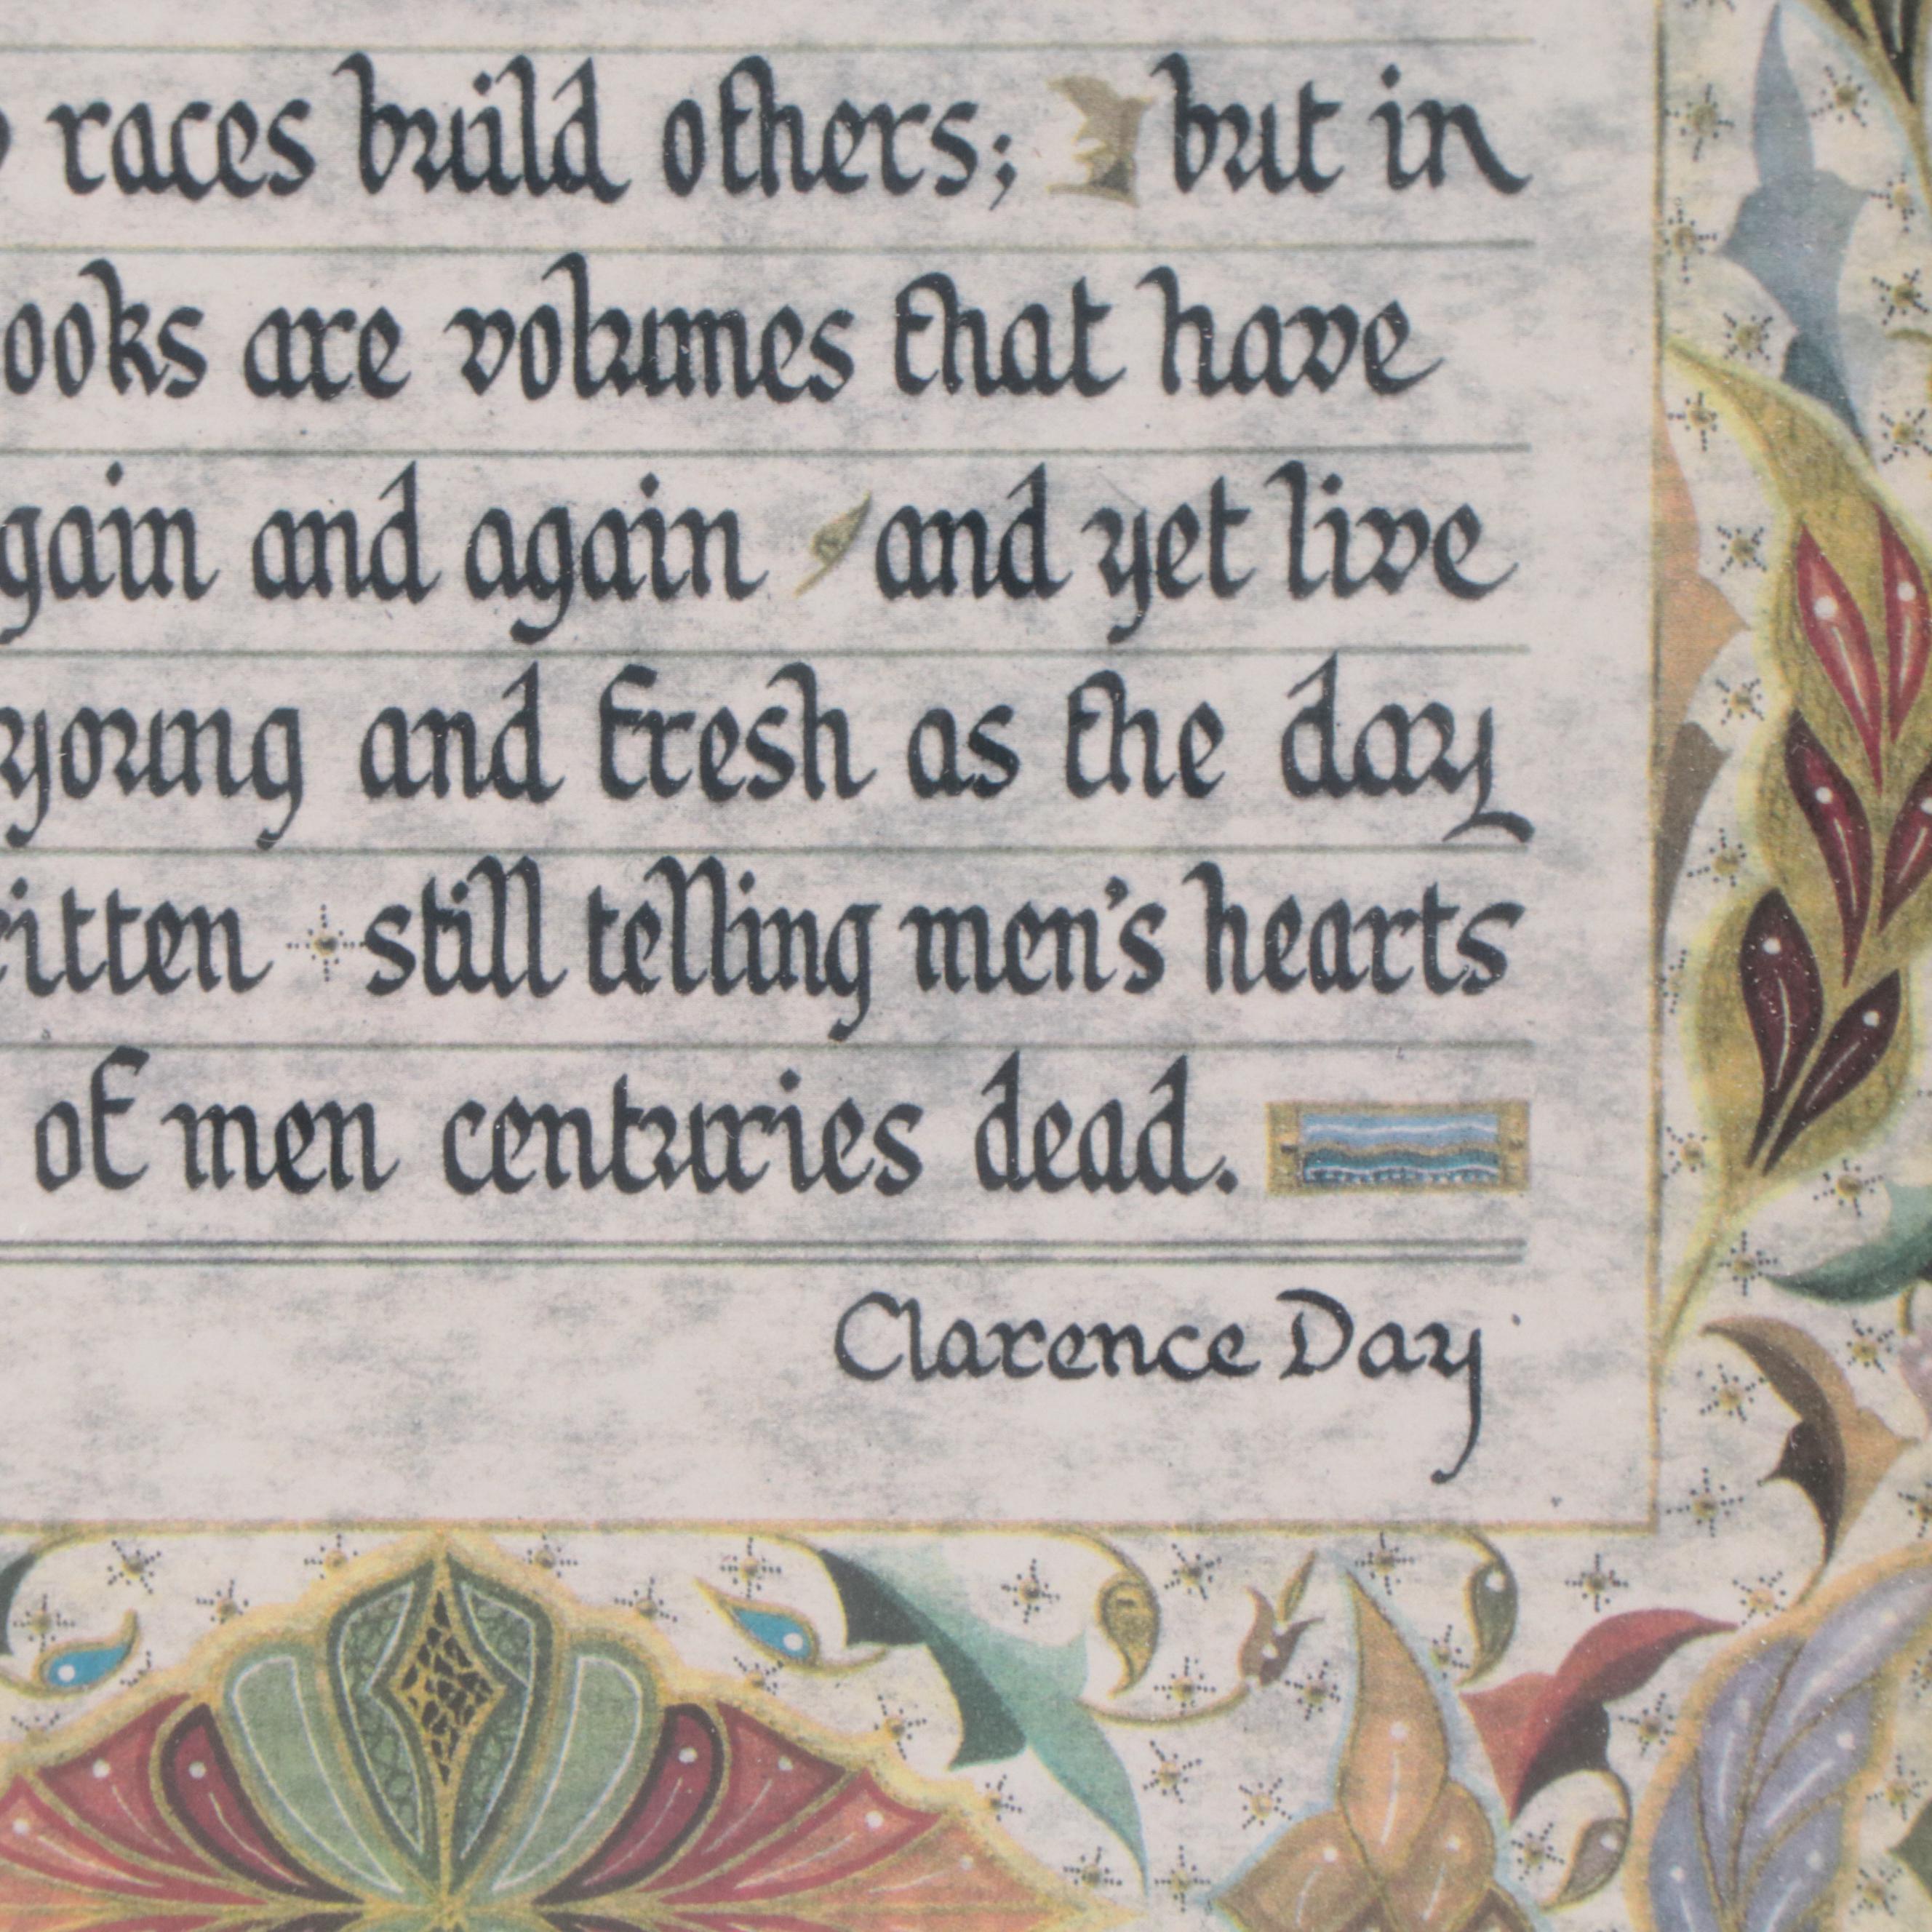 races build others; but in
ooks are volumes that have
gain and again and yet live
young and fresh as the day
itten still telling men's hearts
of men centuries dead.
Clarence Day